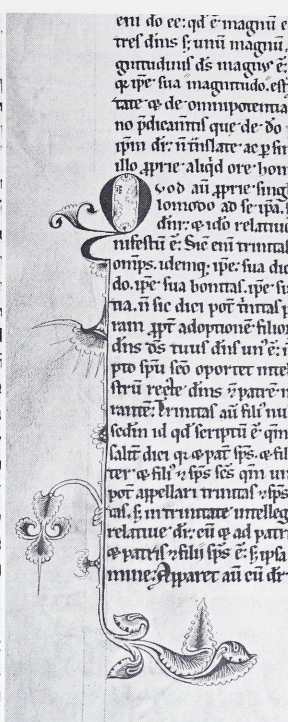 eni do ee: qd ē magnū e
tres dīns s; unū magnū.
gnitudinis ds magnꝰ ē:
⁊ ipe sua magnitudo. est
tate ⁊ de omnipotentia
no pdicamtis que de do
ipm dir: ñ tnslate ac p sim
illo ꝓprie aliqd ore hom
Quod aū ꝓprie singl
lomodo ad se ipa. s
dir: ⁊ id o relatiue
nifestū ē: Sic eni trinitas
omps. idemq; ipe: sua diu
do. ipe sua bonitas. ipe su
tia. ñ sic dici pot tnitas p
ram ꝓpt adoptionē filior
dns ds tuus dns unꝰ ē: i
pto spu sco oportet inte
strū recte dims ⁊ patrē n
rantē: Trinitas aū filiꝰ nu
scdm id qd scriptū ē qm
salit dici qi ⁊ pat sps. ⁊ fil
ter ⁊ filiꝰ ⁊ sps scs qm un
pot appellari trinitas ⁊ sps
tas. s; in trinitate intelleg
relatiue dr: cū ⁊ ad patr
⁊ patris ⁊ filii sps ē: s; ipsa
mine. Apparet aū cū dr